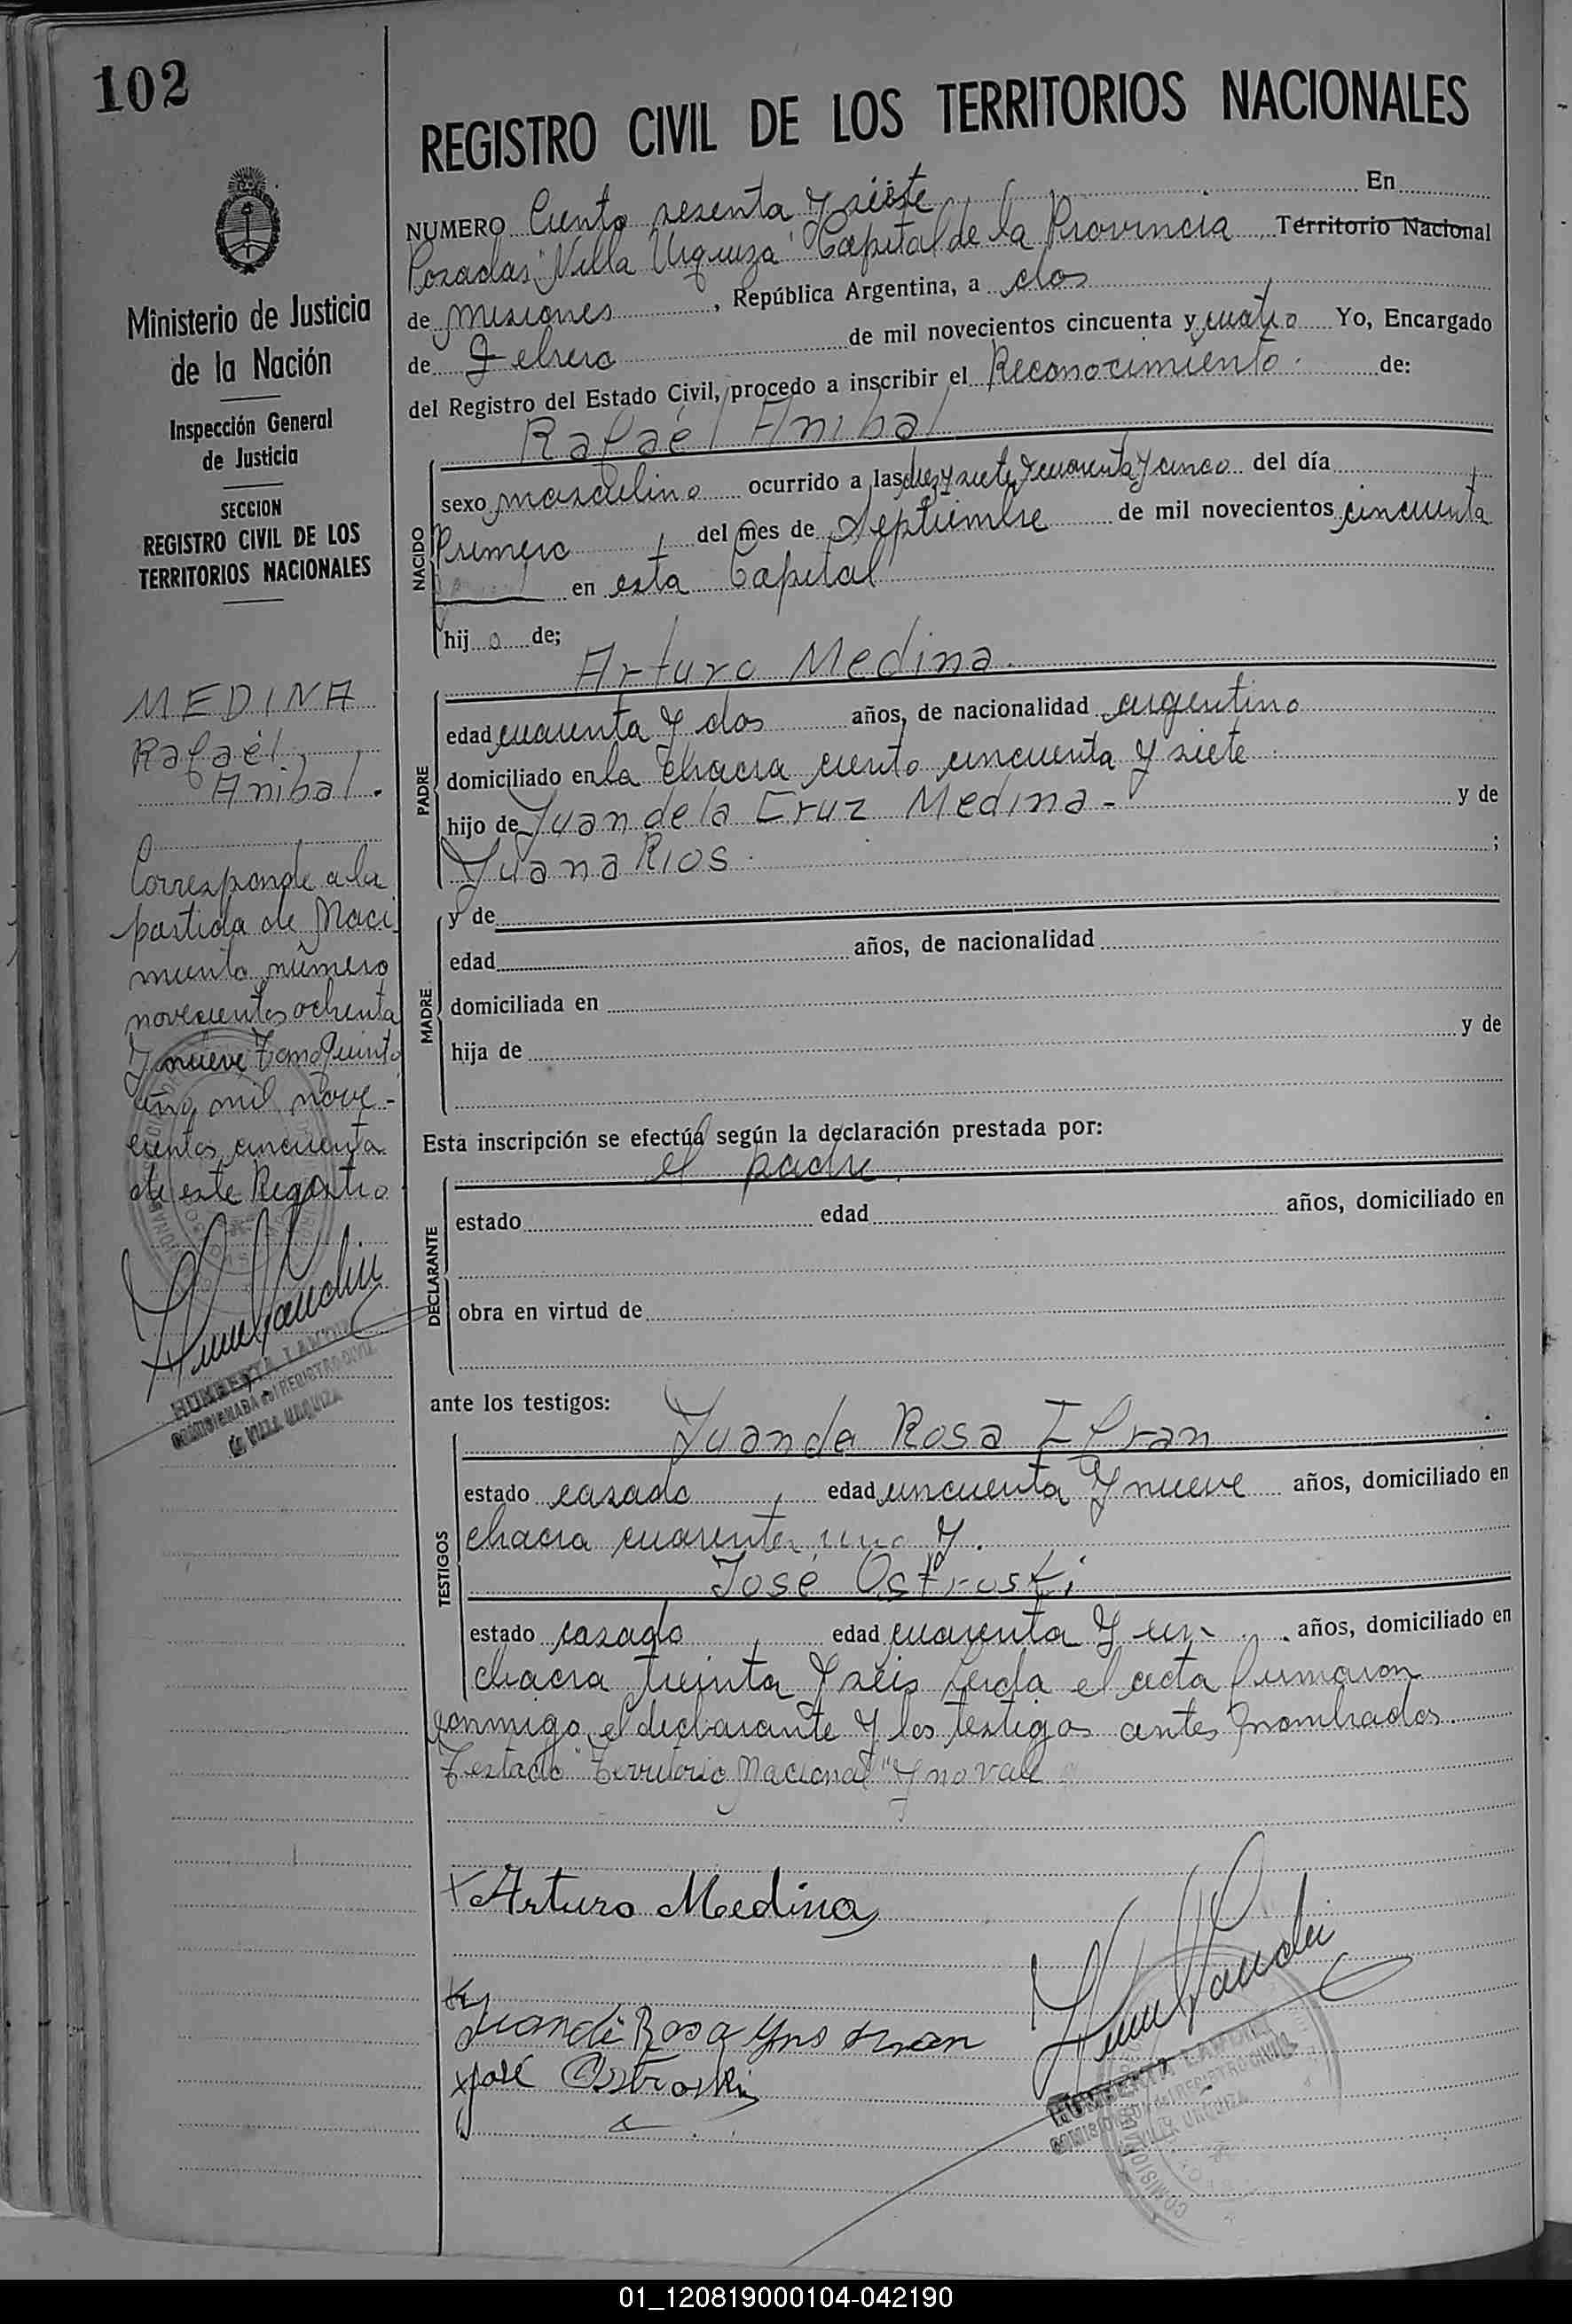 102
REGISTRO CIVIL DE LOS TERRITORIOS NACIONALES
Ministerio de Justicia
de la Nación
Inspección General
de Justicia
SECCION
REGISTRO CIVIL DE LOS
TERRITORIOS NACIONALES
MEDINA
Rafael
Anibal.
Corresponde a la
partida de Naci
miento número
novecientos ochenta
y nueve Tomo Quinto
año mil nove-
cientos cincuenta
de este Registro
COMISIONADA del REGISTRO CIVIL
de VILLA URQUIZA
NUMERO Ciento sesenta y siete En
Posadas "Villa Urquiza" Capital de la Provincia Territorio Nacional
de Misiones, República Argentina, a dos
de Febrero de mil novecientos cincuenta y cuatro Yo, Encargado
del Registro del Estado Civil, procedo a inscribir el Reconocimiento de:
Rafael Anibal
NACIDO
sexo masculino ocurrido a las diez y siete y cuarenta y cinco del día
Primero del mes de Septiembre de mil novecientos cincuenta
en esta Capital
hijo de;
Arturo Medina.
PADRE
edad cuarenta y dos años, de nacionalidad argentino
domiciliado en la chacra ciento cincuenta y siete
hijo de Juan de la Cruz Medina - y de
Juana Rios. ;
MADRE
y de
edad años, de nacionalidad
domiciliada en
hija de y de
Esta inscripción se efectúa según la declaración prestada por:
el padre
DECLARANTE
estado edad años, domiciliado en
obra en virtud de
ante los testigos:
Juan de Rosa
TESTIGOS
estado casado edad cincuenta y nueve años, domiciliado en
chacra cuarenta, uno y.
José Ostroski
estado casado edad cuarenta y un años, domiciliado en
chacra treinta y seis Leida el acta firmaron
conmigo, el declarante y los testigos antes nombrados.
Testado "Territorio Nacional" y no vale
x Arturo Medina
Juan de Rosa
x José Ostroski
01_120819000104-042190